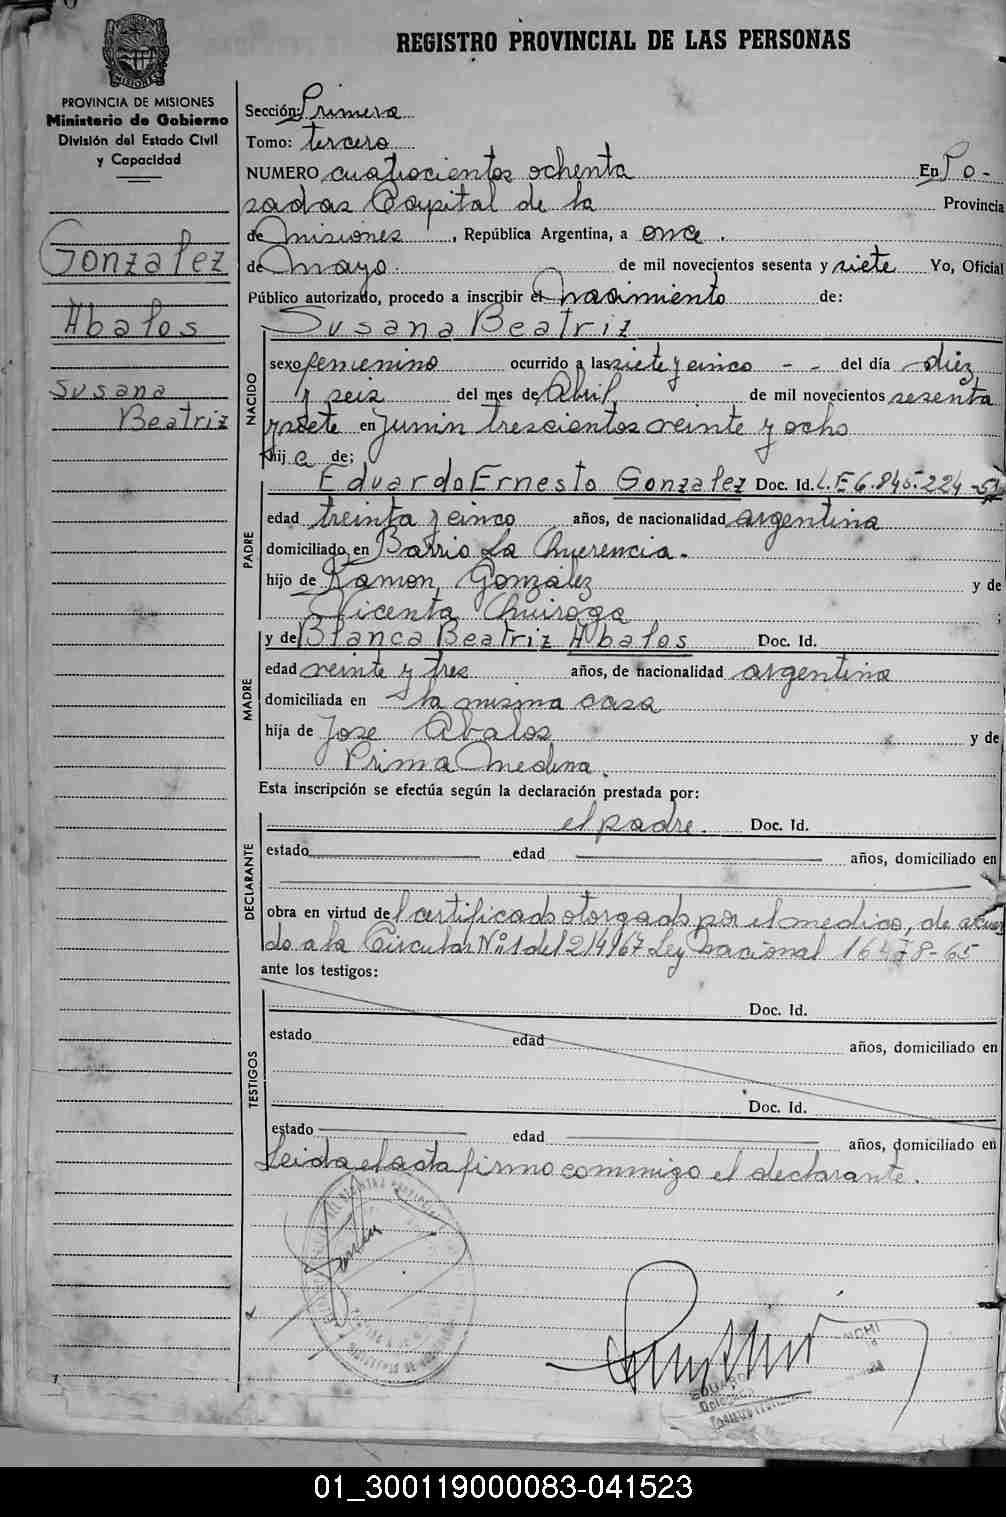 REGISTRO PROVINCIAL DE LAS PERSONAS
PROVINCIA DE MISIONES
Ministerio de Gobierno
División del Estado Civil
y Capacidad
Gonzalez
Abalos
Susana
Beatriz
Sección: Primera
Tomo: tercero
NUMERO cuatrocientos ochenta En Po-
sadas Capital de la Provincia
de Misiones, República Argentina, a once.
de Mayo. de mil novecientos sesenta y siete Yo, Oficial
Público autorizado, procedo a inscribir el nacimiento de:
NACIDO
Susana Beatriz
sexo femenino ocurrido a las siete y cinco - - del día diez
y seis del mes de Abril de mil novecientos sesenta
y siete en Junin trescientos veinte y ocho
hij a de;
PADRE
Eduardo Ernesto Gonzalez Doc. Id. L.E 6.845.224
edad treinta y cinco años, de nacionalidad argentina
domiciliado en Barrio La Querencia.
hijo de Ramon González y de
Vicenta Quiroga ;
MADRE
y de Blanca Beatriz Abalos Doc. Id.
edad veinte y tres años, de nacionalidad argentina
domiciliada en la misma casa
hija de Jose Abalos y de
Prima Medina.
Esta inscripción se efectúa según la declaración prestada por:
DECLARANTE
el padre. Doc. Id.
estado edad años, domiciliado en
obra en virtud del certificado otorgado por el medico, de acuer
do a la Circular Nº 1 del 2/4/67 Ley nacional 16478-65
ante los testigos:
TESTIGOS
Doc. Id.
estado edad años, domiciliado en
Doc. Id.
estado edad años, domiciliado en
Leida el acta firmo commigo el declarante.
01_300119000083-041523